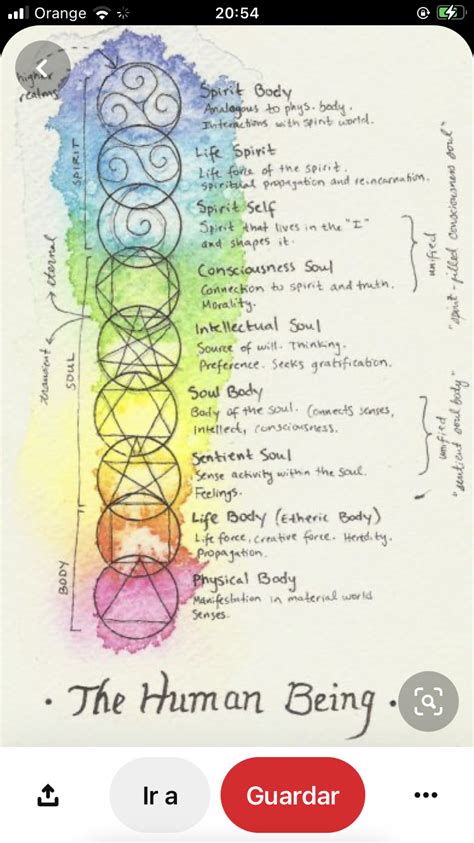 Orange
20:54
higher
realms
Spirit Body
Analogous to phys. body.
Interactions with spirit world.
Life Spirit
Life force of the spirit.
spiritual propagation and reincarnation.
Spirit Self
Spirit that lives in the "I"
and shapes it.
Consciousness Soul
Connection to spirit and truth.
Morality.
Intellectual Soul
Source of will. Thinking.
Preference. Seeks gratification.
Soul Body
Body of the soul. Connects senses,
Intellect, consciousness.
Sentient Soul
Sense activity within the soul.
Feelings.
Life Body (Etheric Body)
Life force, creative force. Heredity.
Propagation.
Physical Body
Manifestation in material world
Senses.
SPIRIT
eternal
transient
SOUL
BODY
unified
"spirit-filled consciousness soul"
unified
"sentient soul body"
· The Human Being ·
Ir a
Guardar